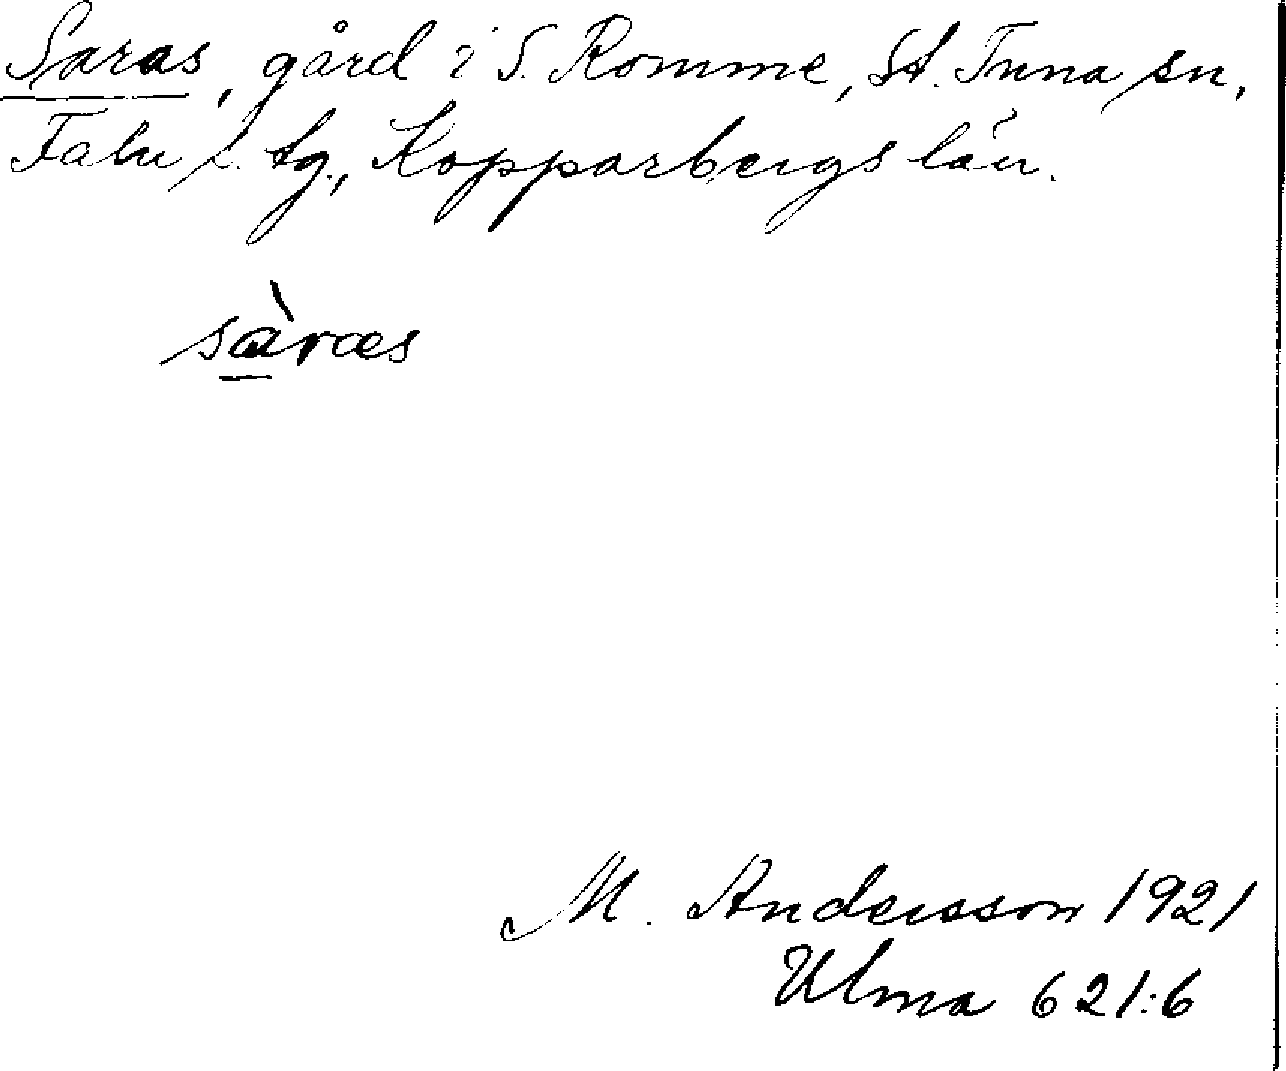 Saras, gård i S. Romme, St. Tuna sn,
Falu s. tg., Kopparbergs län.
sàras
M. Andersson 1921
Ulma 621:6